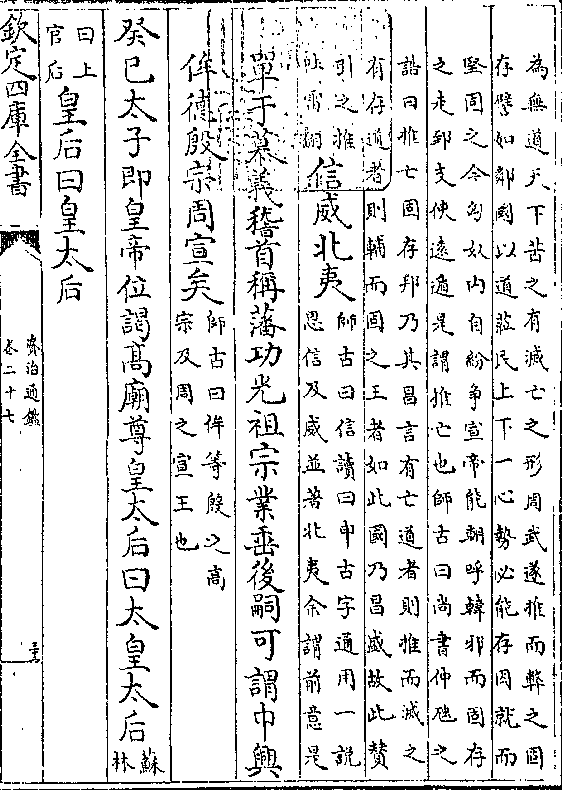 為無道天下苦之有滅亡之形周武遂推而弊之固
存譬如鄰國以道蒞民上下一心勢必能存因就而
堅固之今匈奴内自紛争宣帝能朝呼韓邪而固存
之走郅支使逺遁是謂推亡也師古曰尚書仲虺之
誥曰推亡固存邦乃其昌言有亡道者則推而滅之
有存道者則輔而固之王者如此國乃昌盛故此賛
引之推吐雷翻信威北夷師古曰信讀曰申古字通用一説恩信及威並著北夷余謂前意是
單于慕義稽首稱藩功光祖宗業垂後嗣可謂中興
侔德殷宗周宣矣師古曰侔等殷之髙宗及周之宣王也
癸巳太子即皇帝位謁髙廟尊皇太后曰太皇太后蘇林
曰上官后皇后曰皇太后
欽定四庫全書
資治通鑑
卷二十七